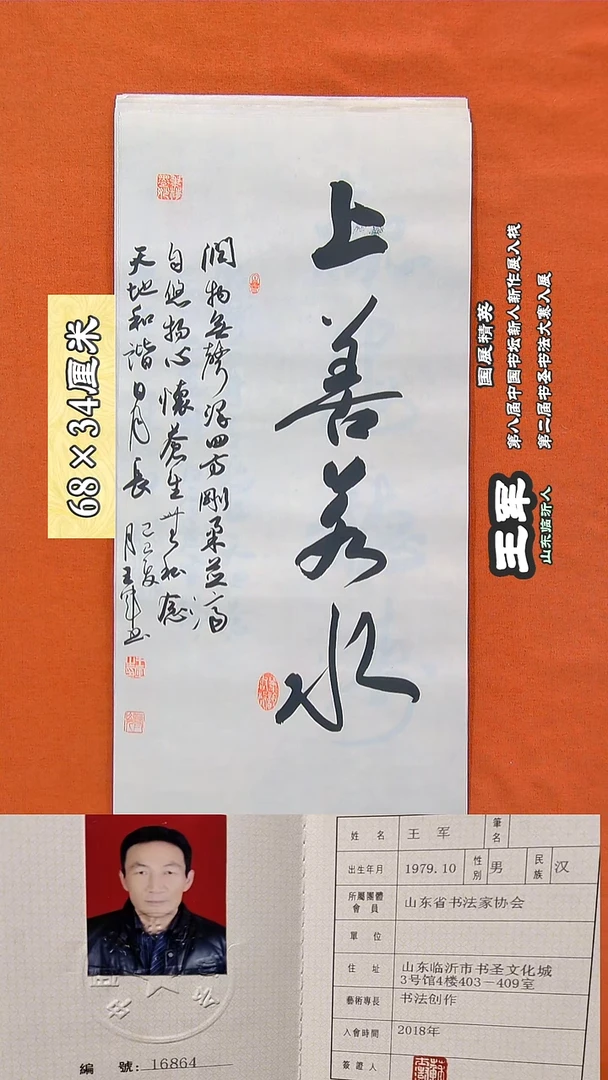 上善若水
润物无声浮四方刚柔并济
自悠扬心怀苍生无私念
天地和谐日月长
王军书
68×34厘米
国展精英
第八届中国书坛新人新作展入展
第二届书圣书法大赛入展
王军
山东临沂人
編 號: 16864
姓 名 王 军 筆名
出生年月 1979.10 性別 男 民族 汉
所屬團體會員 山东省书法家协会
單 位
住 址 山东临沂市书圣文化城
3号馆4楼403－409室
藝術專長 书法创作
入會時間 2018年
簽證人